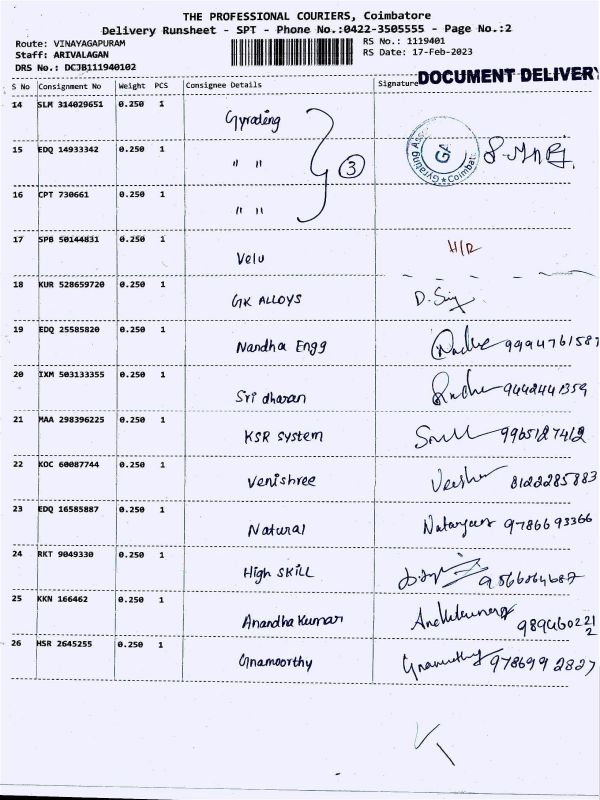 THE PROFESSIONAL COURIERS, Coimbatore
Delivery Runsheet - SPT - Phone No.:0422-3505555 - Page No.:2
Route: VINAYAGAPURAM
Staff: ARIVALAGAN
DRS No.: DCJB111940102
RS No.: 1119401
RS Date: 17-Feb-2023
S No Consignment No Weight PCS Consignee Details Signature DOCUMENT DELIVERY
14 SLM 314029651 0.250 1 Gyrating
15 EDQ 14933342 0.250 1 " " 3 GA
16 CPT 730661 0.250 1 " "
17 SPB 50144831 0.250 1 Velu H/R
18 KUR 528659720 0.250 1 GK ALLOYS
19 EDQ 25585820 0.250 1 Nandha Engg 9994761587
20 IXM 503133355 0.250 1 Sri dharan 9442441359
21 MAA 298396225 0.250 1 KSR System 9965127412
22 KOC 60087744 0.250 1 Venishree 8122285883
23 EDQ 16585887 0.250 1 Natural 9786693366
24 RKT 9049330 0.250 1 High SKILL
25 KKN 166462 0.250 1 Anandha Kumar 9894602212
26 HSR 2645255 0.250 1 Gnamoorthy 9786992827